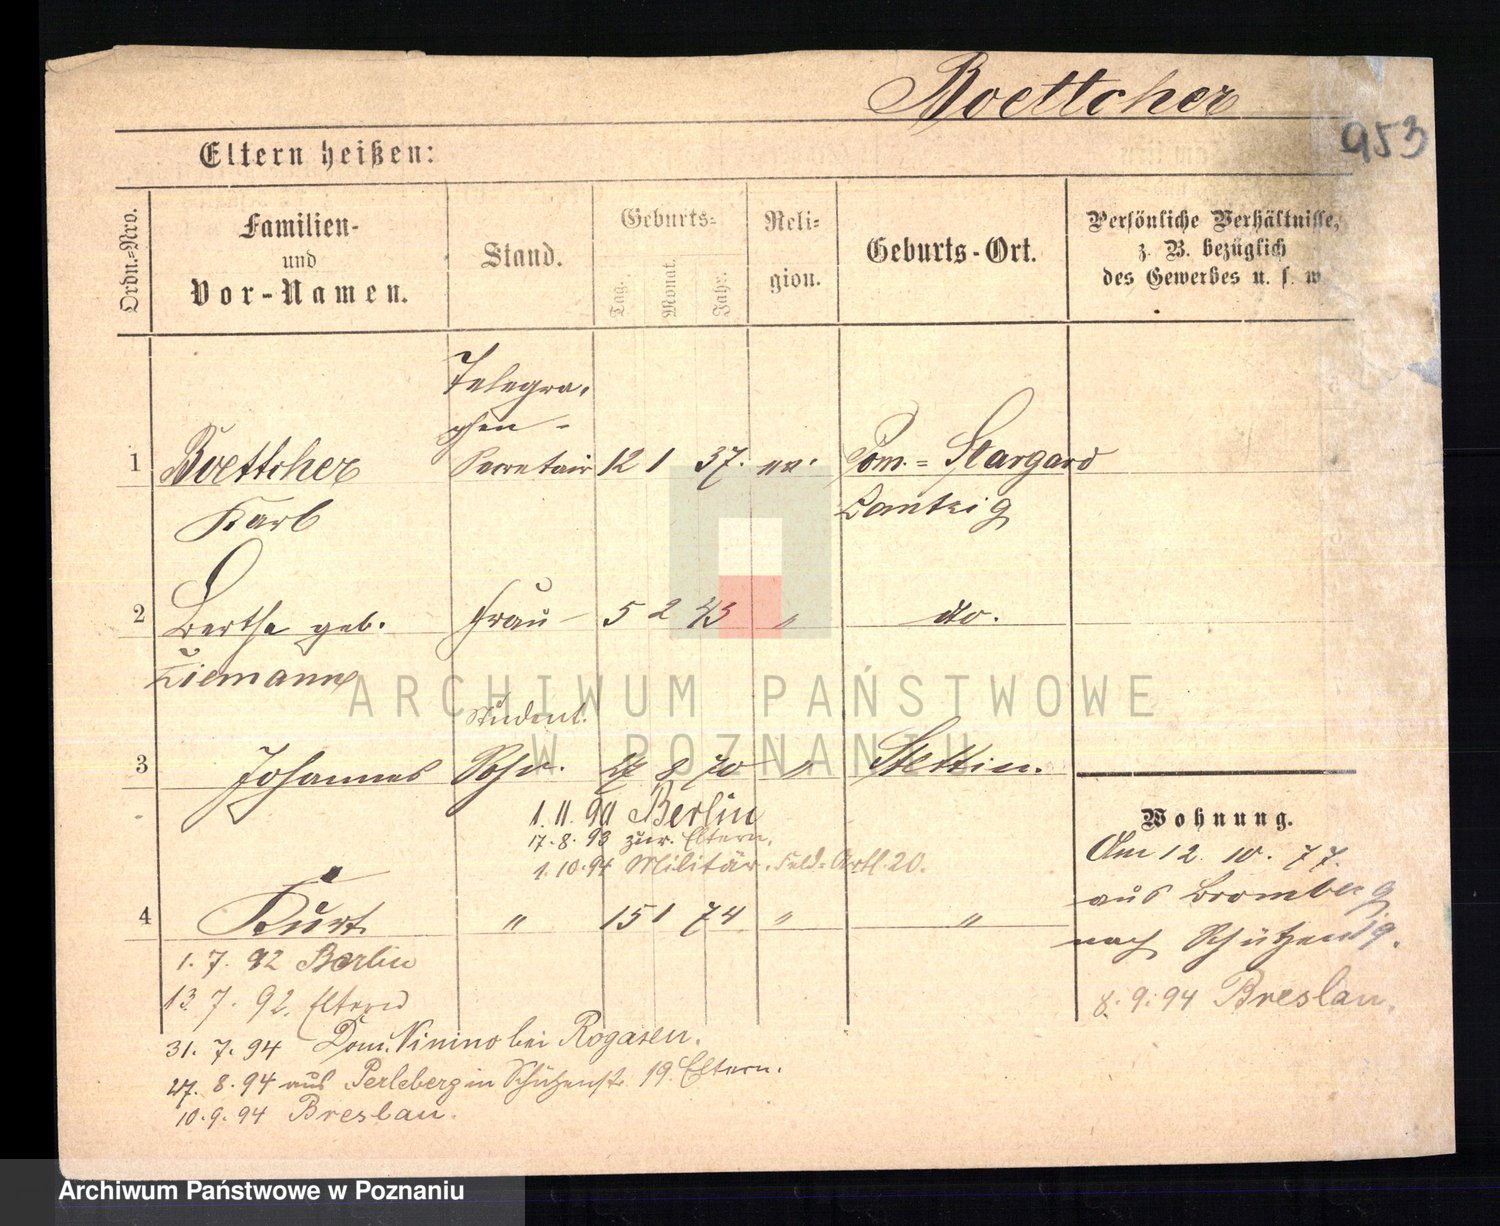 Boettcher
953
Eltern heißen:
Ordn.=Nro.
Familien-
und
Vor-Namen.
Stand.
Geburts=
Tag.
Monat.
Jahr.
Reli=
gion.
Geburts-Ort.
Persönliche Verhältnisse,
z. B. bezüglich
des Gewerbes u. s. w
Telegra-
phen-
1 Boettcher Secretair 12 1 37. ev. Pom.= Stargard
Karl
2 Bertha geb. Frau 5 2 43 " do.
Ziemann
Student.
3 Johannes Sohn. 27 8 70 " Stettin.
1. 11. 90 Berlin
17. 8. 93 zur. Eltern.
1. 10. 94 Militär. Feld=Artl. 20.
4 Kurt " 15 1 74 " "
1. 7. 92 Berlin
13. 7. 92. Eltern
31. 7. 94 Dom. Ninino bei Rogasen.
27. 8. 94 aus Perleberg in Schützenstr. 19. Eltern.
10. 9. 94 Breslau.
Wohnung.
Am 12. 10. 77.
aus Bromberg
nach Schützen 19.
8. 9. 94 Breslau.
ARCHIWUM PAŃSTWOWE
W POZNANIU
Archiwum Państwowe w Poznaniu